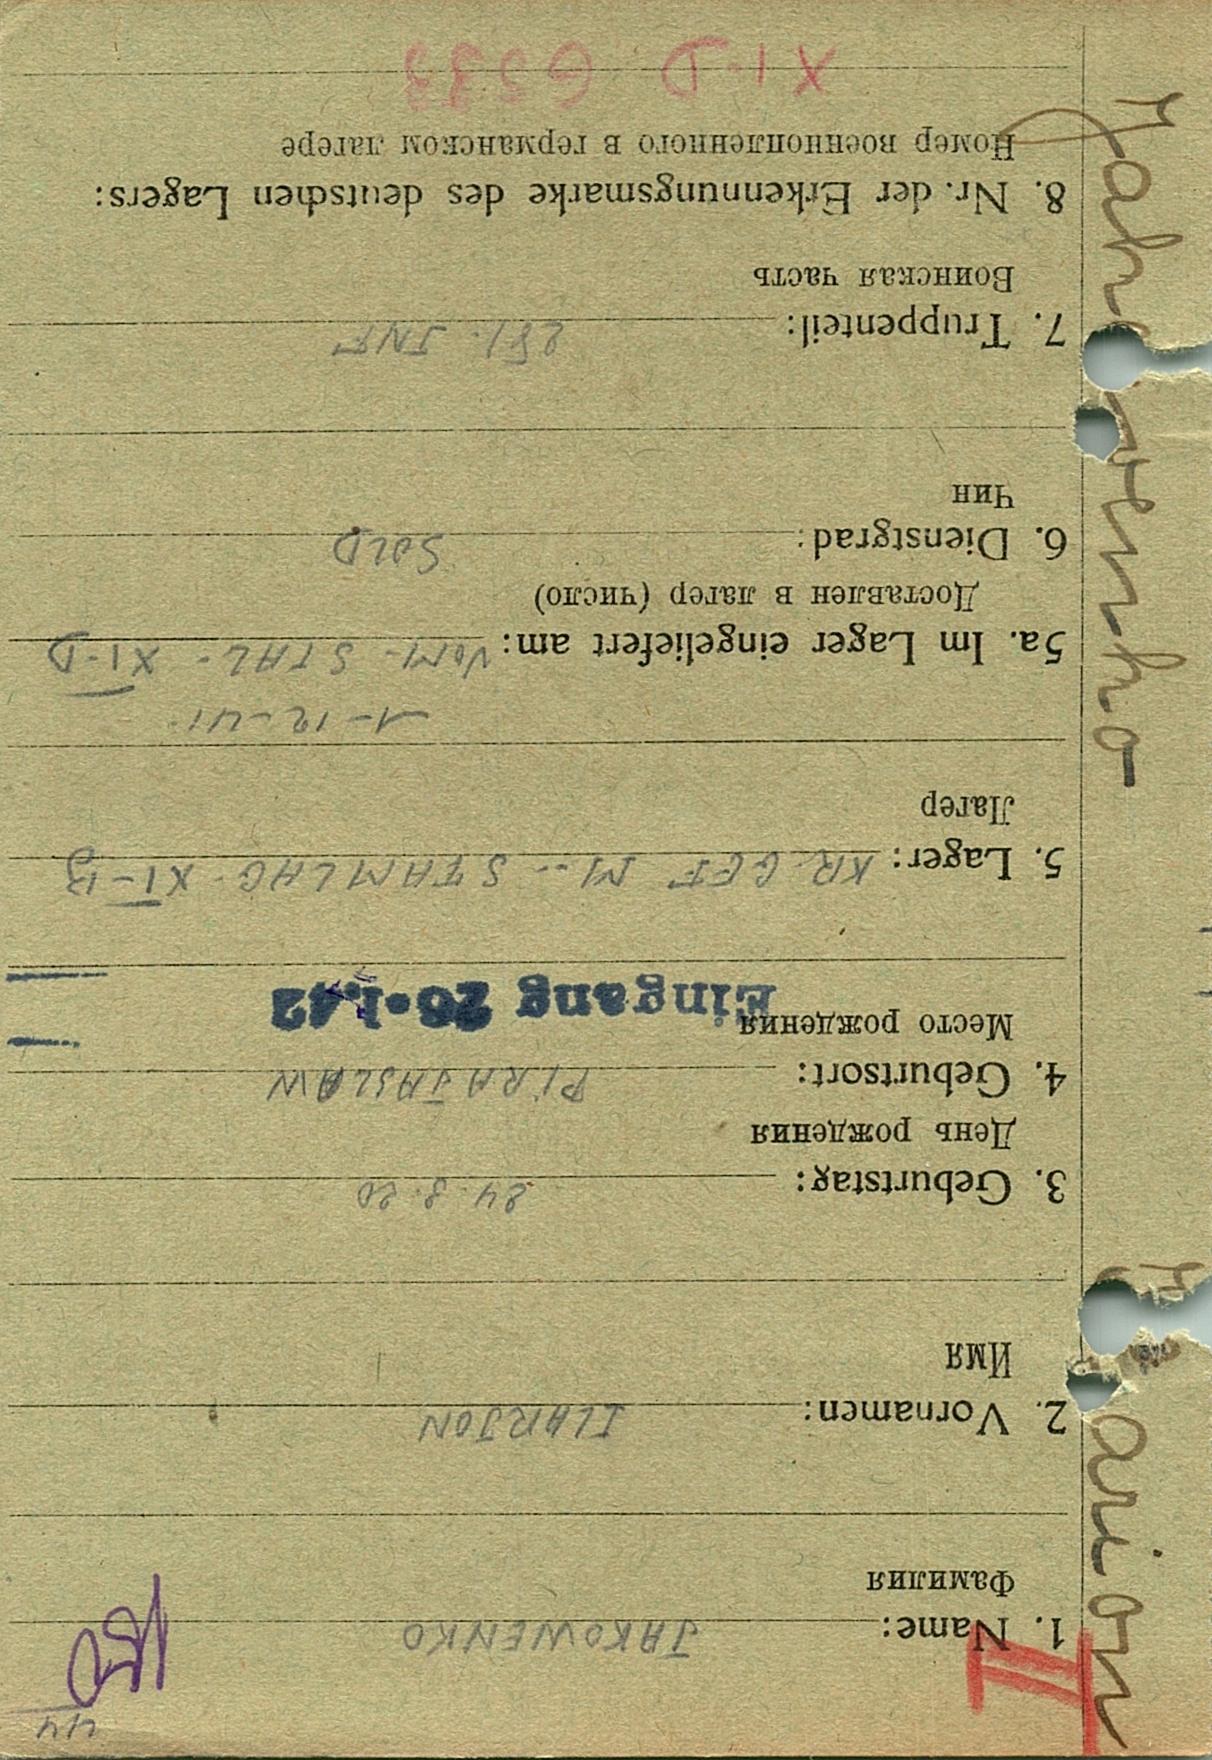 44
II
1. Name: JAKOWENKO
Фамилия
2. Vornamen: ILARJON
Имя
3. Geburtstag: 24.8.20
День рождения
4. Geburtsort: PIRAJASLAW
Место рождения
Eingang 26.1.42
5. Lager: KR. GEF M.- STAMLAG. XI-B
Лагер
1-12-41.
5a. Im Lager eingeliefert am: VOM- STAL- XI-D
Доставлен в лагер (число)
6. Dienstgrad: SOLD
Чин
7. Truppenteil: 281. INF
Воинская часть
8. Nr. der Erkennungsmarke des deutschen Lagers:
Номер военнопленного в германском лагере
XI-D